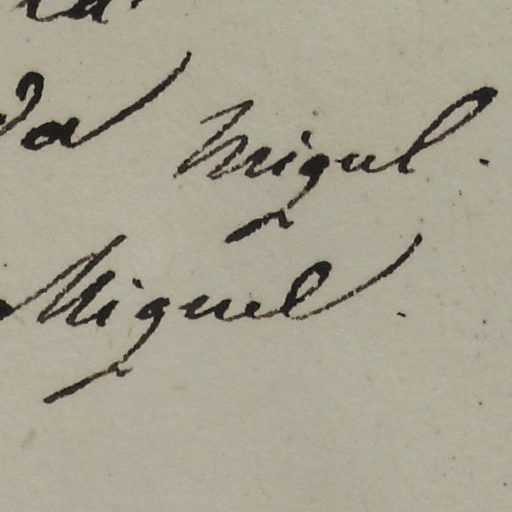 da Miguel.
Miguel.